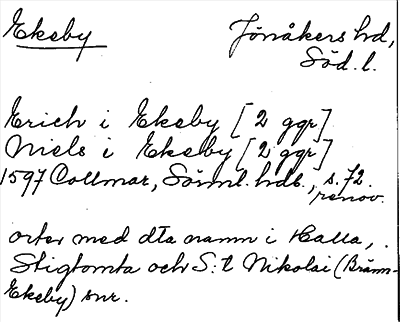 Ekeby Jönåkers hd,
Söd. l.
Erich i Ekeby [2 ggr]
Niels i Ekeby [2 ggr]
1597 Collmar, Sörml. hdl., s. 72.
renov.
orter med dta namn i Halla,
Stigtomta och S:t Nikolai (Bränn-
Ekeby) snr.